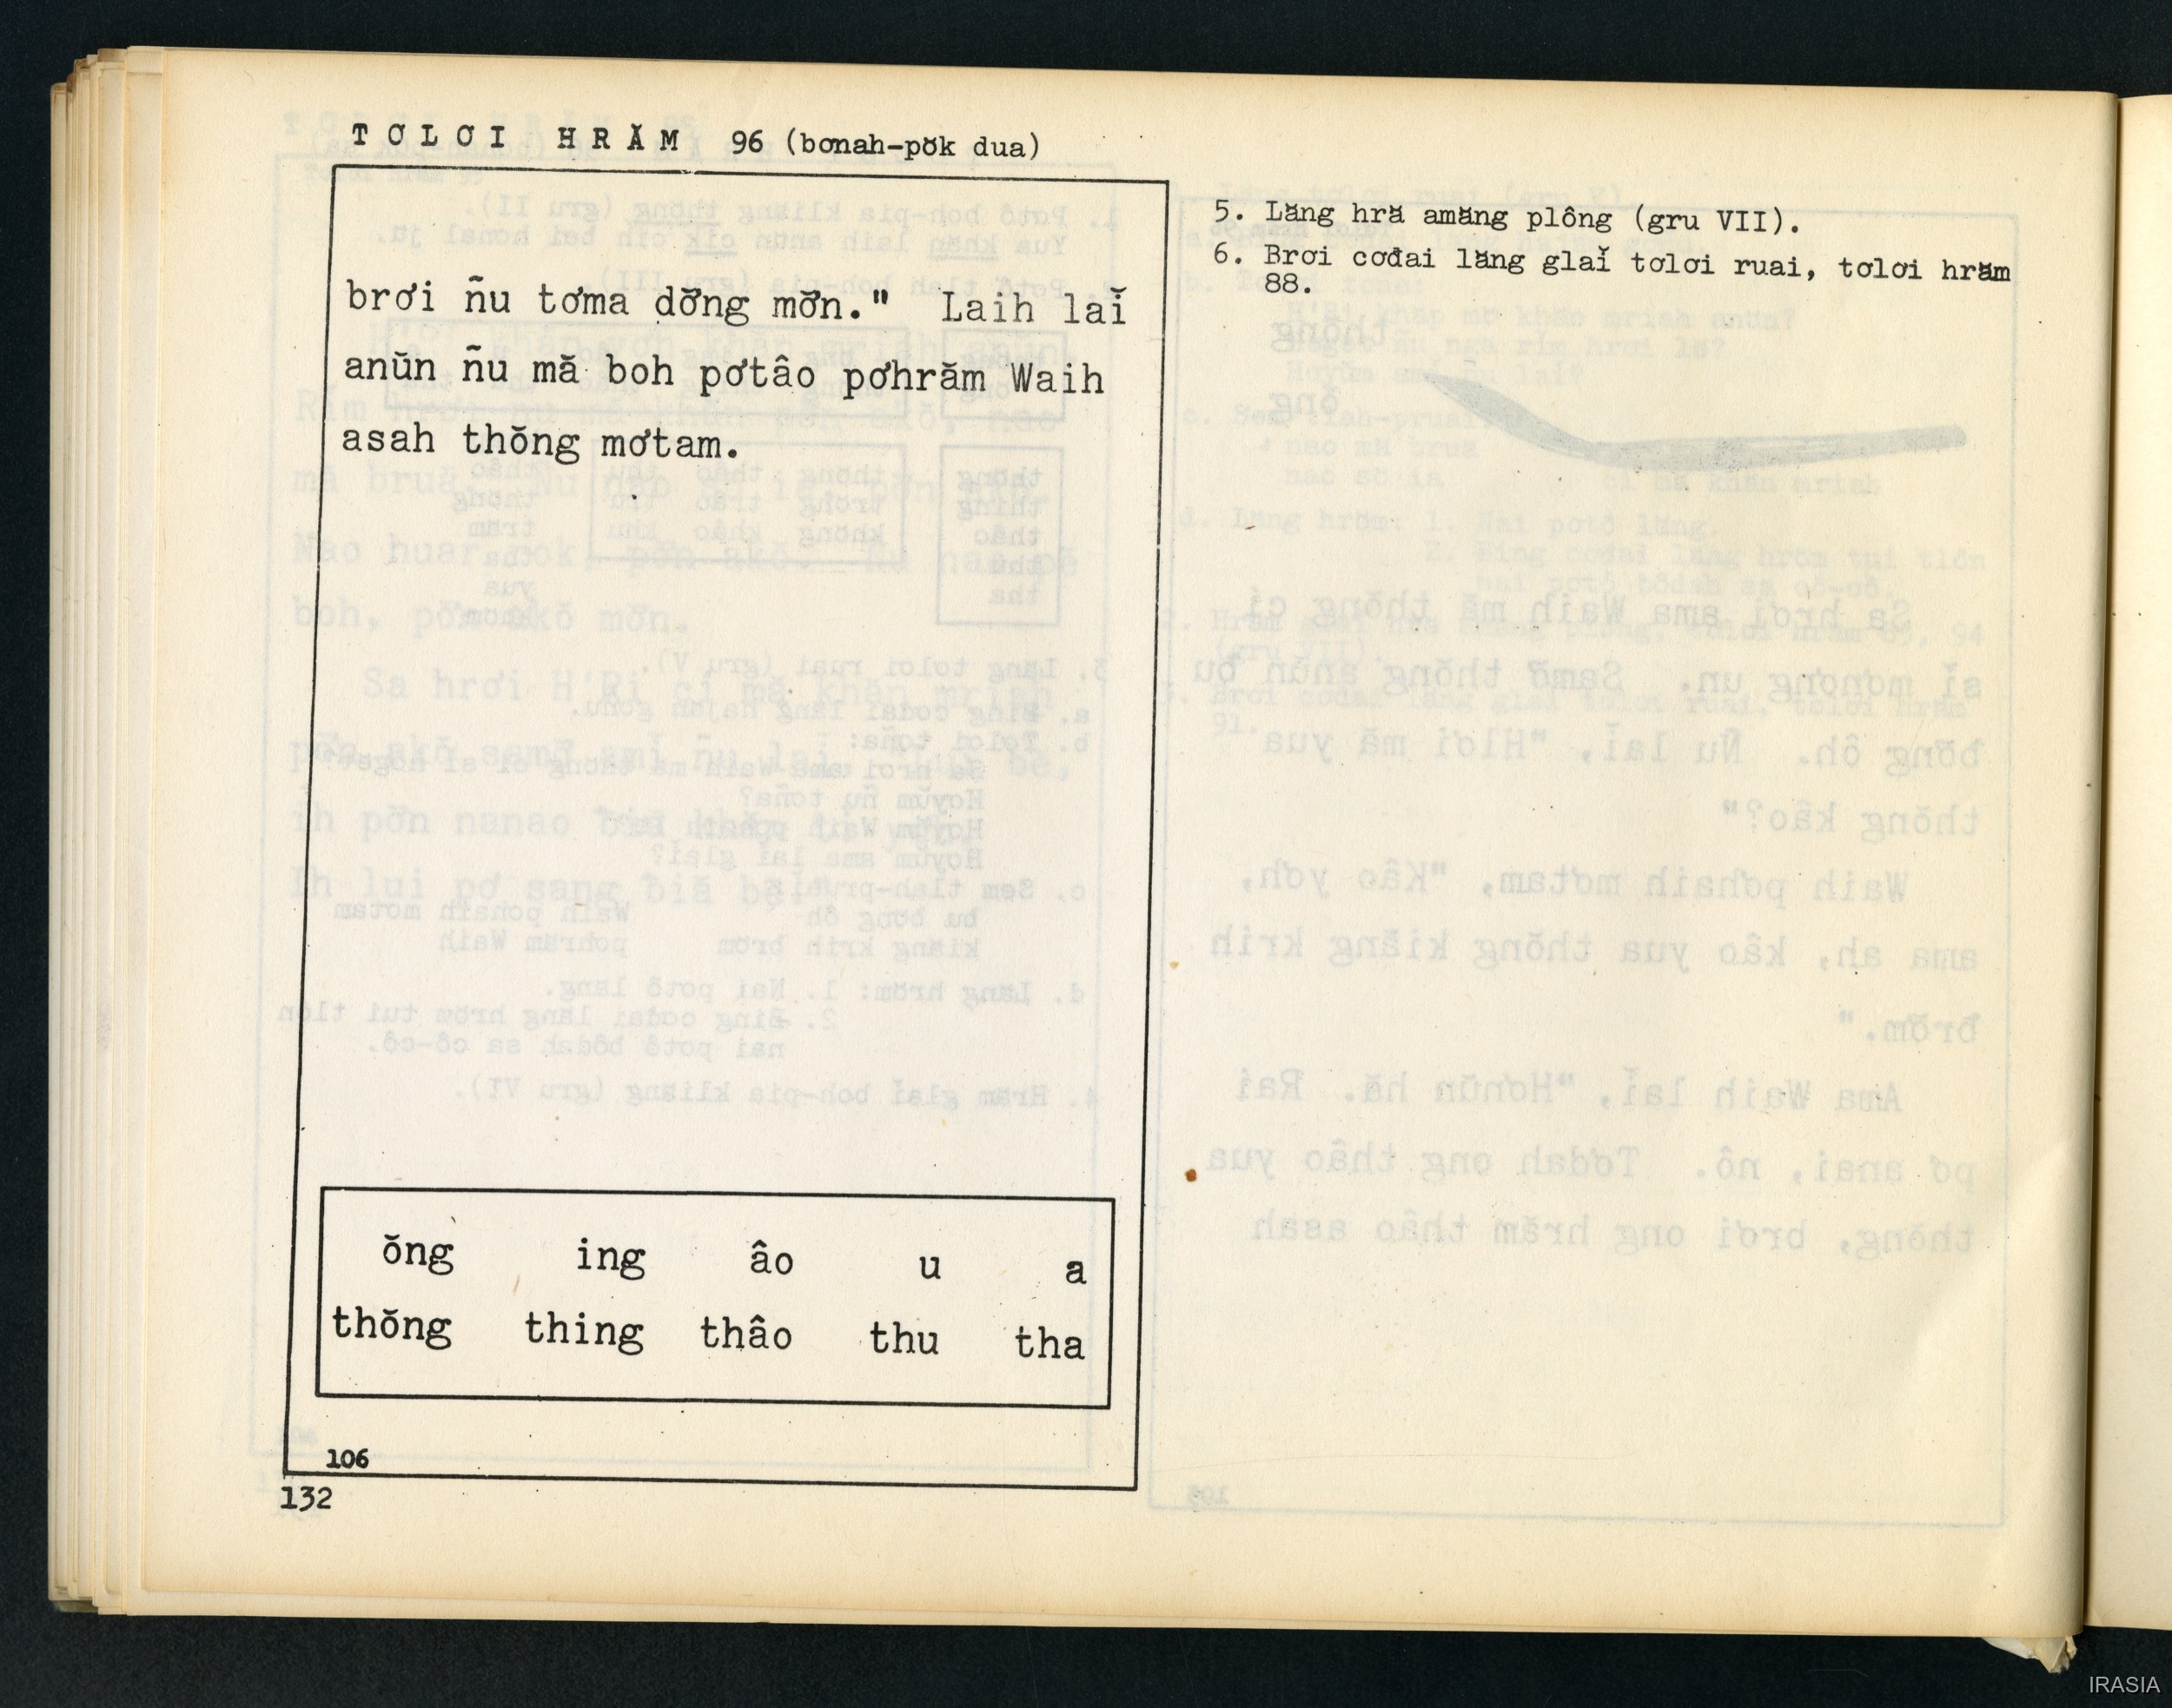 TƠLƠI HRĂM 96 (bơnah-pŏk dua)
brơi ñu tơma dơ̆ng mơ̆n." Laih laĭ
anŭn ñu mă boh pơtâo pơhrăm Waih
asah thŏng mơtam.
ŏng ing âo u a
thŏng thing thâo thu tha
106
132
5. Lăng hră amăng plông (gru VII).
6. Brơi cơđai lăng glaĭ tơlơi ruai, tơlơi hrăm
88.
IRASIA